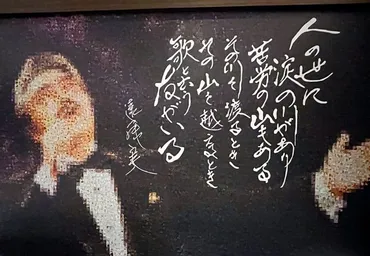 人の世に
涙の川があり
苦労の山もある
その川を渡るとき
その山を越えるとき
歌と云う
友がいる
遠藤実